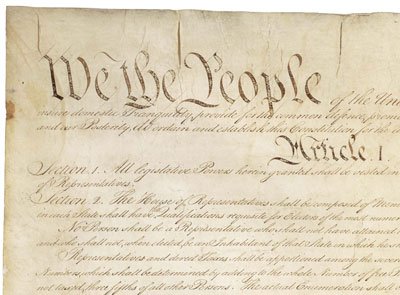 We the People of the Unit
insure domestic Tranquility, provide for the common defence, promo
and our Posterity, do ordain and establish this Constitution for the
Article. I.
Section. 1. All legislative Powers herein granted shall be vested in
of Representatives.
Section. 2. The House of Representatives shall be composed of Mem
in each State shall have Qualifications requisite for Electors of the most numer
No Person shall be a Representative who shall not have attained
and who shall not, when elected, be an Inhabitant of that State in which he sh
Representatives and direct Taxes shall be apportioned among the sever
Numbers, which shall be determined by adding to the whole Number of free
not taxed, three fifths of all other Persons. The actual Enumeration shall